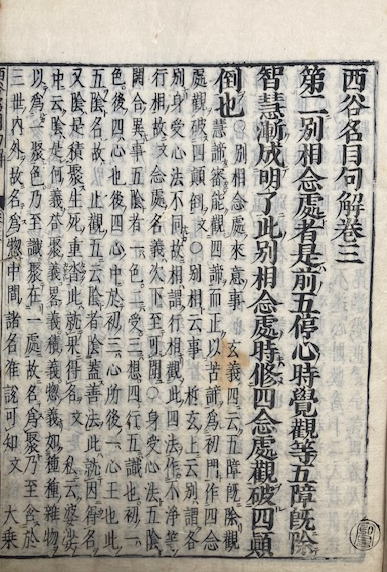 西谷名目句解卷三
第二別相念處者是前五停心時覺觀等五障既除
智慧漸成明了此別相念處時修四念處觀破四顛
倒也
〇別相念處來意事 玄義四云五障既除觀
慧諦審能觀四諦而正以苦諦爲初門作四念
處觀破四顛倒文〇別相云事 玄上云別謂各
別身受心法不同故相謂行相觀此四法作不淨等
行相故文念處名義次下至可聞〇身受心法五陰
開合異事五陰者一色二受三想四行五識也初一
色後四心也後四心中於初三心所後一心王也
五陰名故 止觀五云陰者陰蓋善法此就因得名
又陰是積聚生死重沓此就果得名文 私云婆沙
中云陰是何義荅聚義畧義積義惣義如種種雜物
以爲一聚色乃至識聚在一處故名爲聚乃至於
三世內外故名爲惣中間諸名准可知文 大乘